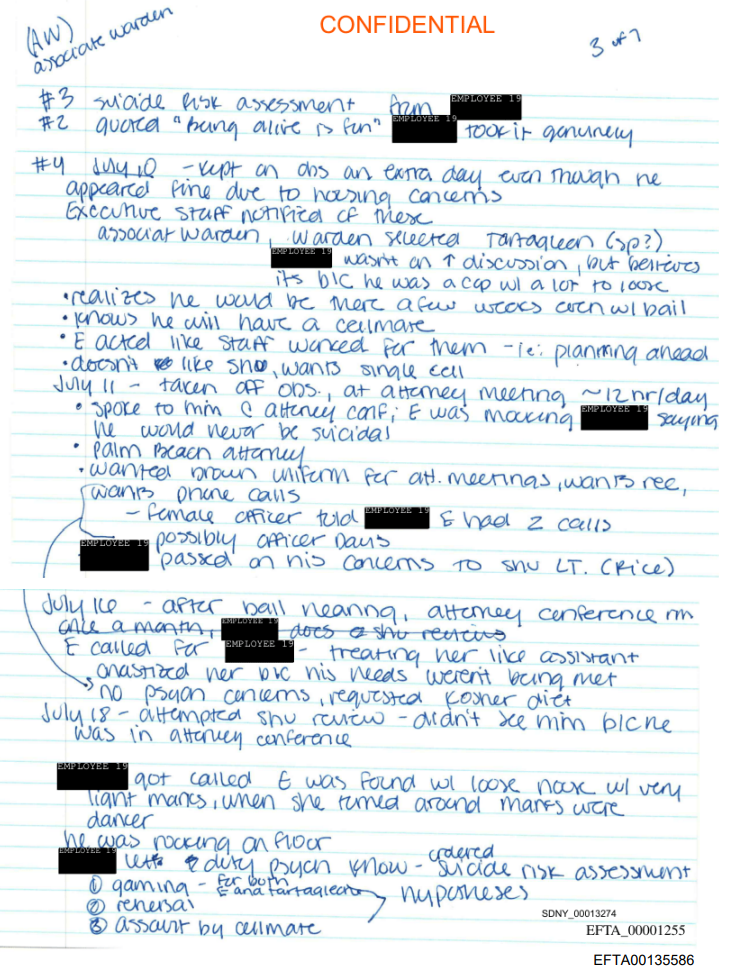 CONFIDENTIAL
(AW)
associate warden
3 of 7
#3 suicide risk assessment from EMPLOYEE 19
#2 quoted "being alive is fun" EMPLOYEE 19 took it genuinely
#4 July 10 - kept on obs an extra day even though he
appeared fine due to housing concerns
Executive staff notified of these
associat warden, warden selected Tartagleen (sp?)
EMPLOYEE 19 wasn't on ↑ discussion, but believes
its b/c he was a cop w/ a lot to loose
• realizes he would be there a few weeks even w/ bail
• knows he will have a cellmate
• E acted like staff worked for them - ie: planning ahead
• doesn't like shu, wants single cell
July 11 - taken off obs., at attorney meeting ~12 hr/day
• spoke to him @ attorney conf; E was mocking EMPLOYEE 19 saying
he would never be suicidal
• palm beach attorney
• wanted brown uniform for att. meetings, wants rec,
wants phone calls
- female officer told EMPLOYEE 19 E had 2 calls
possibly officer Days
EMPLOYEE 19 passed on his concerns to shu LT. (Rice)
July 16 - after bail hearing, attorney conference rm
once a month, EMPLOYEE 19 does shu reviews
E called for EMPLOYEE 19 - treating her like assistant
chastized her b/c his needs weren't being met
no psych concerns, requested kosher diet
July 18 - attempted shu review - didn't see him b/c he
was in attorney conference
EMPLOYEE 19 got called E was found w/ loose noose w/ very
light marks, when she turned around marks were
darker
he was rocking on floor
EMPLOYEE 19 lets duty psych know - ordered suicide risk assessment
① gaming - for both E and Tartagleon
② rehersal
③ assault by cellmate
hypotheses
SDNY_00013274
EFTA_00001255
EFTA00135586